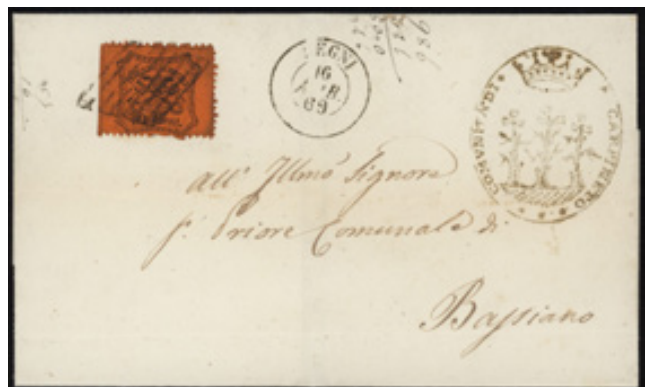 SEGNI
16
APR.
69
COMUNITA DI CARPINETO
All' Illmo Signore
Priore Comunale di
Bassiano